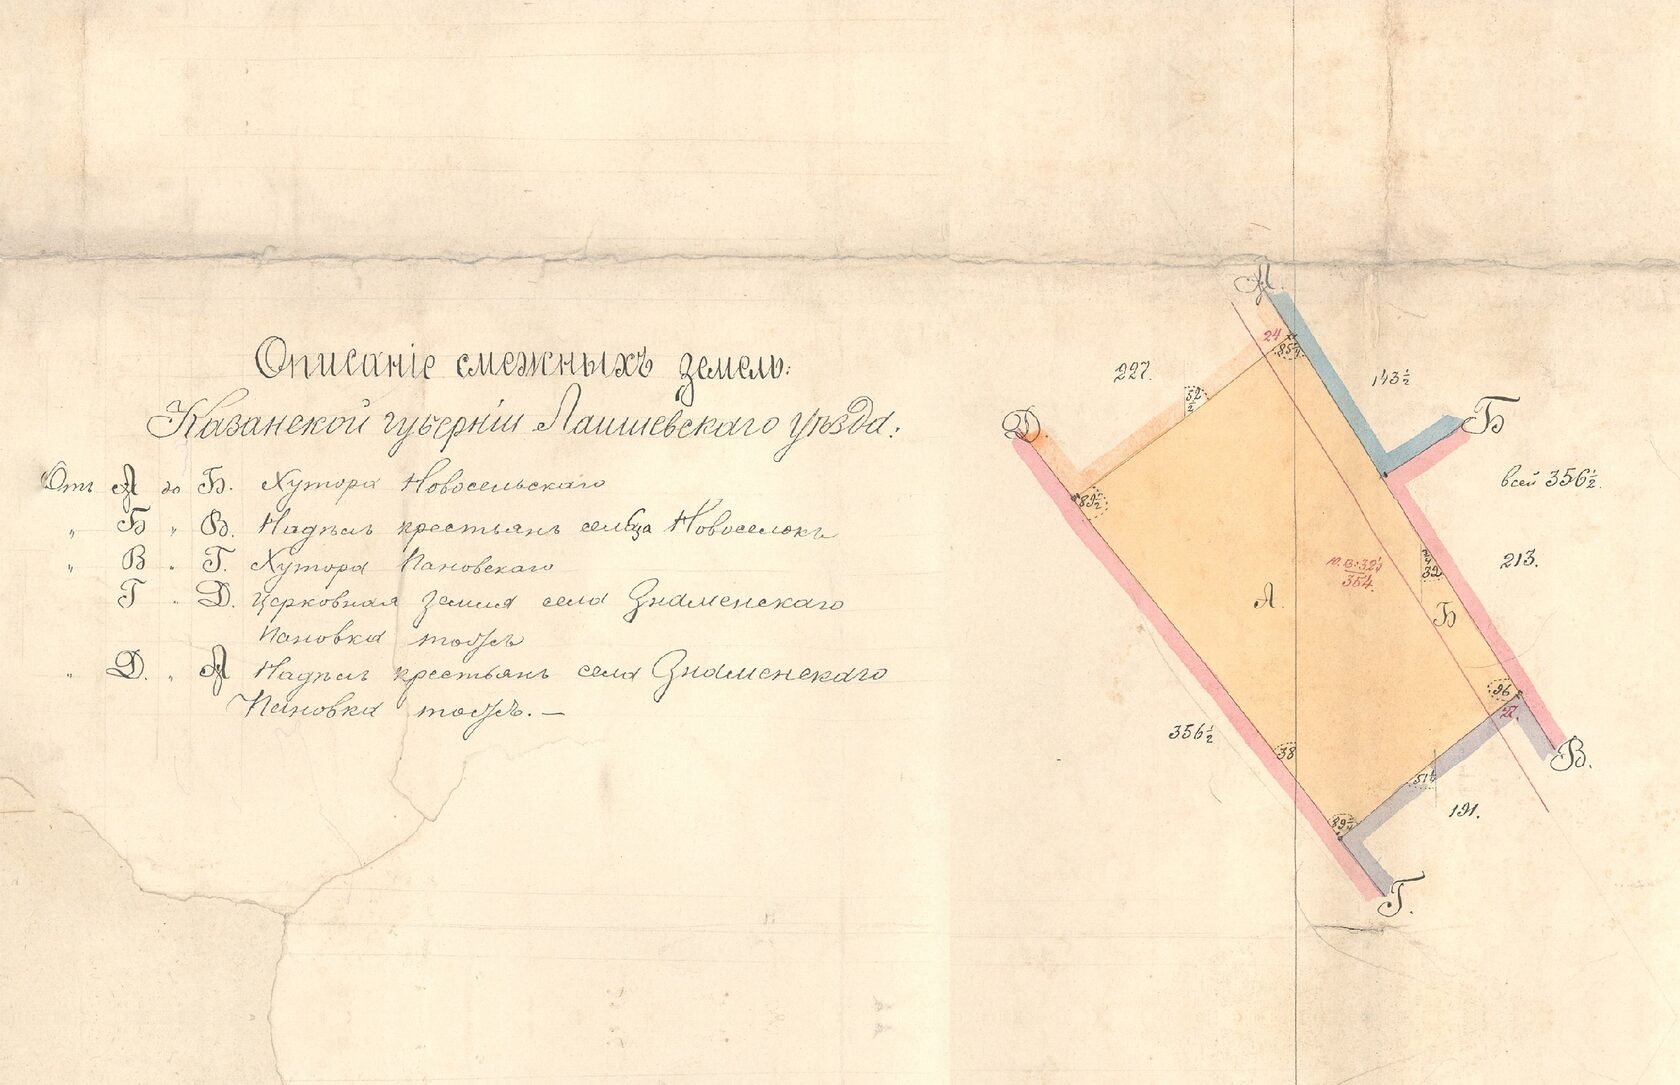 Описаніе смежныхъ земель:
Казанской губерніи Лаишевскаго уѣзда:
Отъ А до Б. Хутора Новосельскаго
„ Б „ В. Надѣлъ крестьянъ сельца Новоселокъ
„ В „ Г. Хутора Пановскаго
Г „ Д. Церковная земля села Знаменскаго
Пановка тожъ
„ Д. „ А Надѣлъ крестьянъ села Знаменскаго
Пановка тожъ. —
А.
24
85¼
227.
52½
143½
Д.
Б
89½
всей 356½.
213.
32
354.
А.
Б
96
22.
356½
38
В.
51¼
191.
89¼
Г.